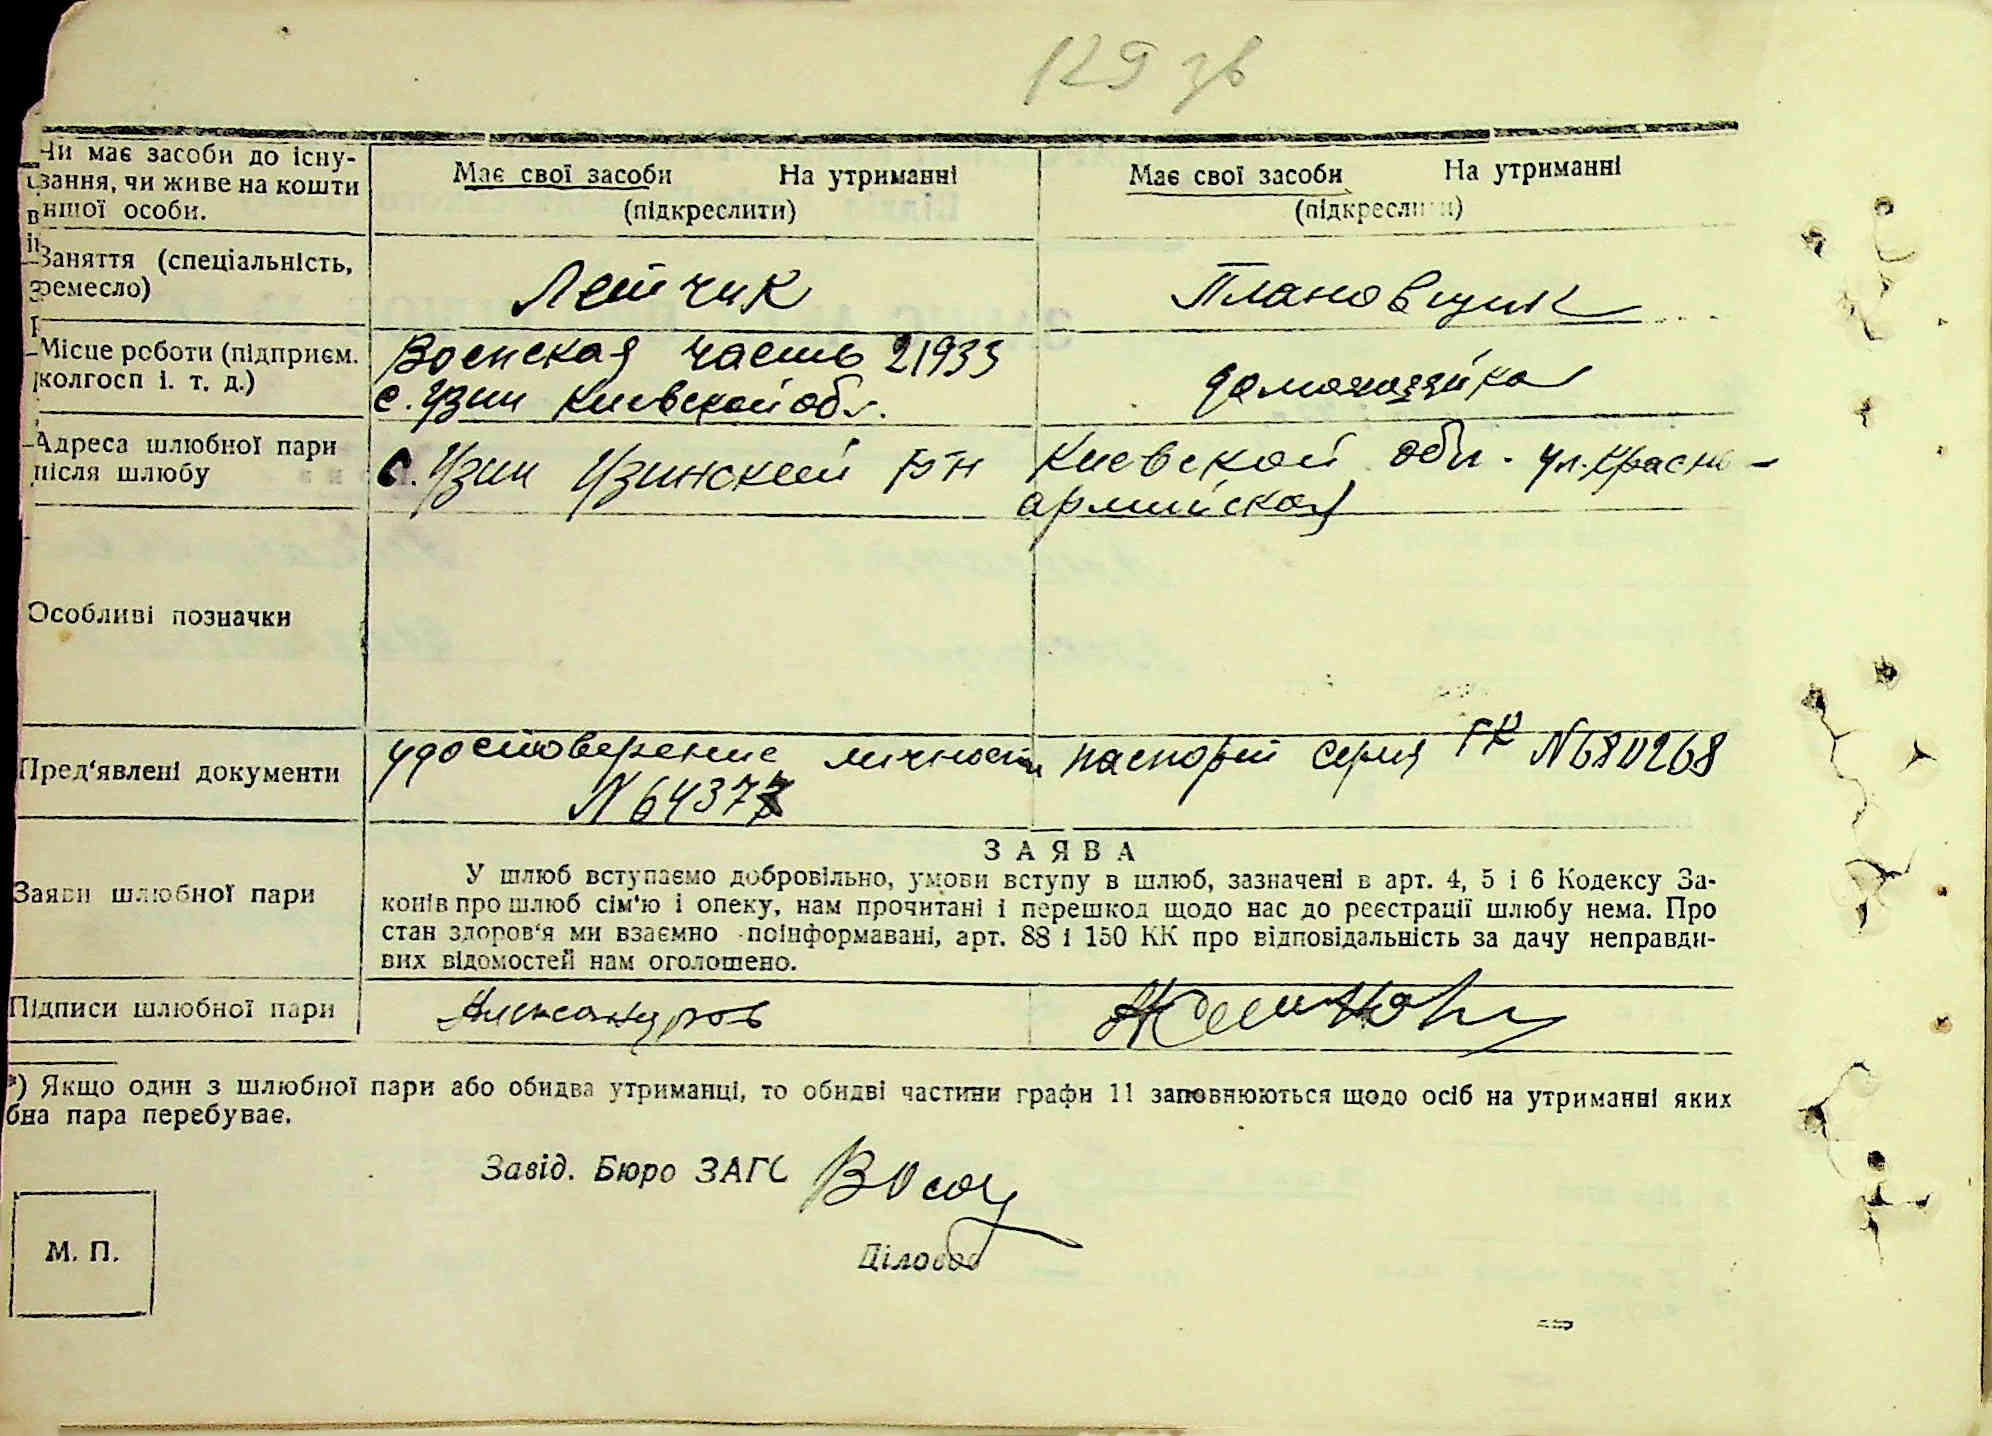 129 зв
Чи має засоби до існу-
вання, чи живе на кошти
іншої особи.
Має свої засоби На утриманні
(підкреслити)
Має свої засоби На утриманні
(підкреслити)
Заняття (спеціальність,
ремесло)
Летчик
Плановщик
Місце роботи (підприєм.
колгосп і. т. д.)
Военская часть 21933
с. Узин Киевской обл.
домохозяйка
Адреса шлюбної пари
після шлюбу
с. Узин Узинский р-н Киевской обл. ул. Красно-
армийская
Особливі позначки
Пред'явлені документи
удостоверение личности
N 64377
паспорт серия ГК N 680268
Заяви шлюбної пари
ЗАЯВА
У шлюб вступаємо добровільно, умови вступу в шлюб, зазначені в арт. 4, 5 і 6 Кодексу За-
конів про шлюб сім'ю і опеку, нам прочитані і перешкод щодо нас до реєстрації шлюбу нема. Про
стан здоров'я ми взаємно поінформавані, арт. 88 і 150 КК про відповідальність за дачу неправди-
вих відомостей нам оголошено.
Підписи шлюбної пари
Александров
*) Якщо один з шлюбної пари або обидва утриманці, то обидві частини графи 11 заповнюються щодо осіб на утриманні яких
бна пара перебуває.
Завід. Бюро ЗАГС
Діловод
М. П.